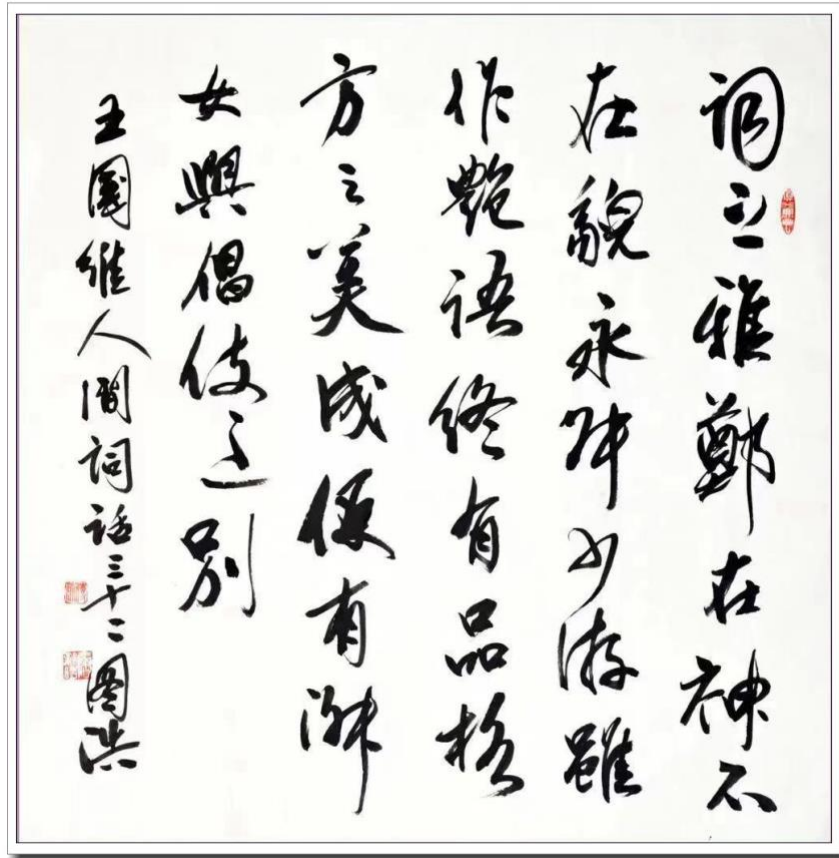 词之雅鄭在神不
在貌永叔少游雖
作艷語終有品格
方之美成便有淑
女與倡伎之别
王國維人間詞話三十二國洪